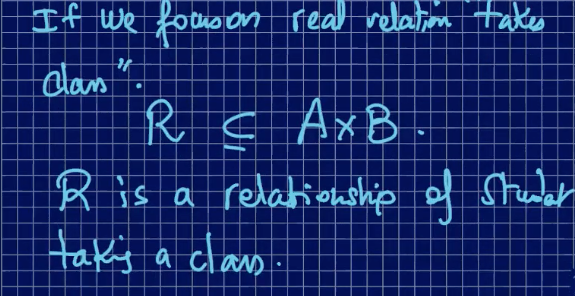 If we focus on real relation "takes
class".
R ⊆ A×B.
R is a relationship of student
taking a class.